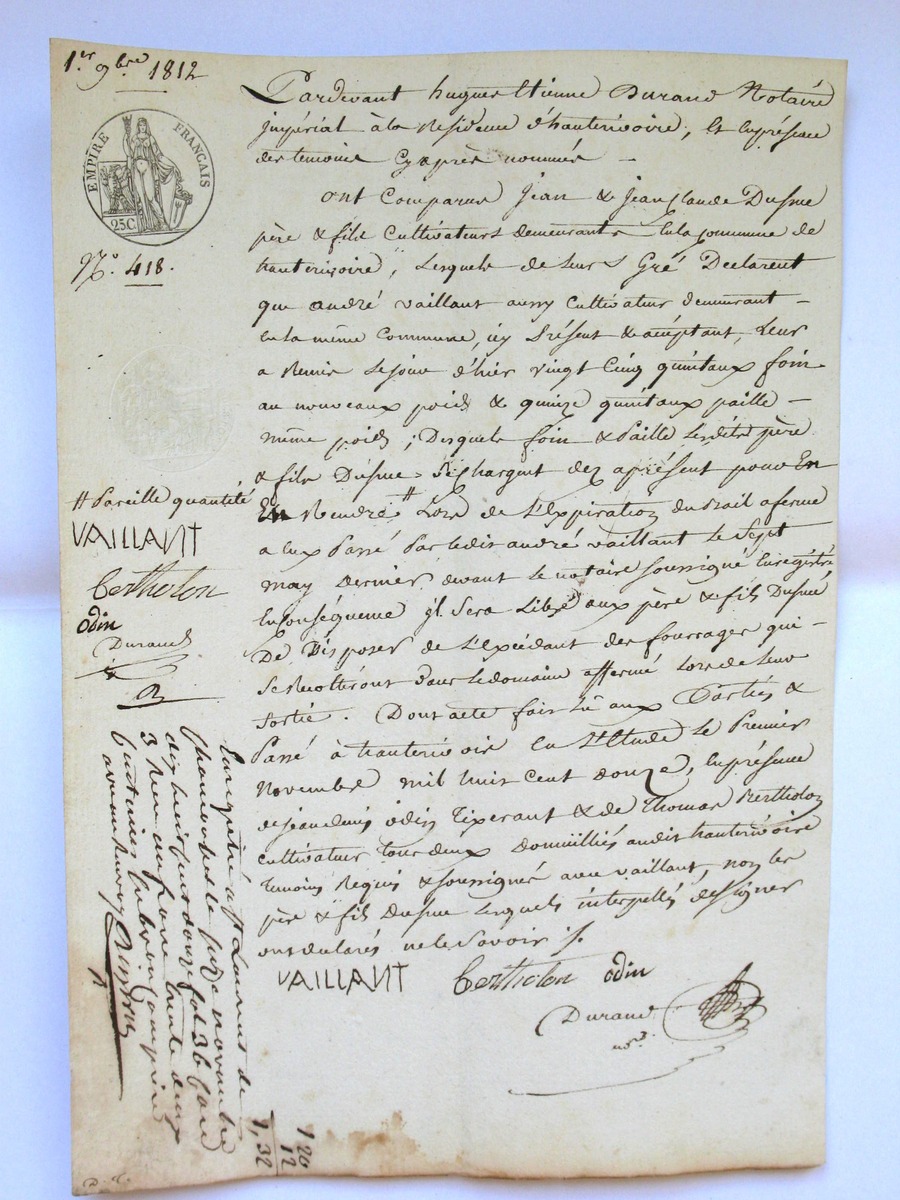 1.er 9bre 1812
EMPIRE FRANÇAIS
25C.
N.o 418.
Pardevant hugues Etienne Durand Notaire
impérial à la Residence d'hauterivoire, et En présence
des temoins Cy après nommés —
ont Comparus Jean & Jean Claude Dusue
père & fils Cultivateurs demeurants En la Commune de
hauterivoire, Lesquels de leurs Gré Declarent
que andré vaillant aussy Cultivateur demeurant —
En la même Commune, icy Présent & acceptant, Leur
a Remis Le jour d'hier vingt Cinq quintaux foin
au nouveaux poids & quinze quintaux paille —
même poids; Desquels foin & Paille Lesdits père
& fils Dusue Se Chargent dez aprésent pour En
En Rendre # Lors de L'Expiration du Bail aferme
a Eux Passé Par ledit andré vaillant le Sept
may Dernier devant le notaire soussigné Enregistré
En Conséquence il Sera Libre aux père & fils Dusue
De Disposer de L'Excédant des fourrages qui -
Se Recolteront Dans le domaine affermé Lors de Leur
Sortie. Dont acte fait Lû aux Parties &
Passé à hauterivoire En L'Etude le Premier
Novembre mil huit Cent douze, En présence
de jean denis odin Tixerant & de Thomas Bertholon
Cultivateur Tous deux Domiciliés audit hauterivoire
Temoins Requis & soussignés avec vaillant, non les
père & fils dusue Lesquels interpellés de signer
ont declarés ne le Savoir ./.
VAILLANT Bertholon odin
Durand
n.re
# Pareille quantité
VAILLANT
Bertholon
odin
Durand
Enregistré à St Laurent de
Chamousset le onze novembre
dix huit cent douze fol 36
3 Reçu un franc trente deux
centimes
1 20
12
1,32